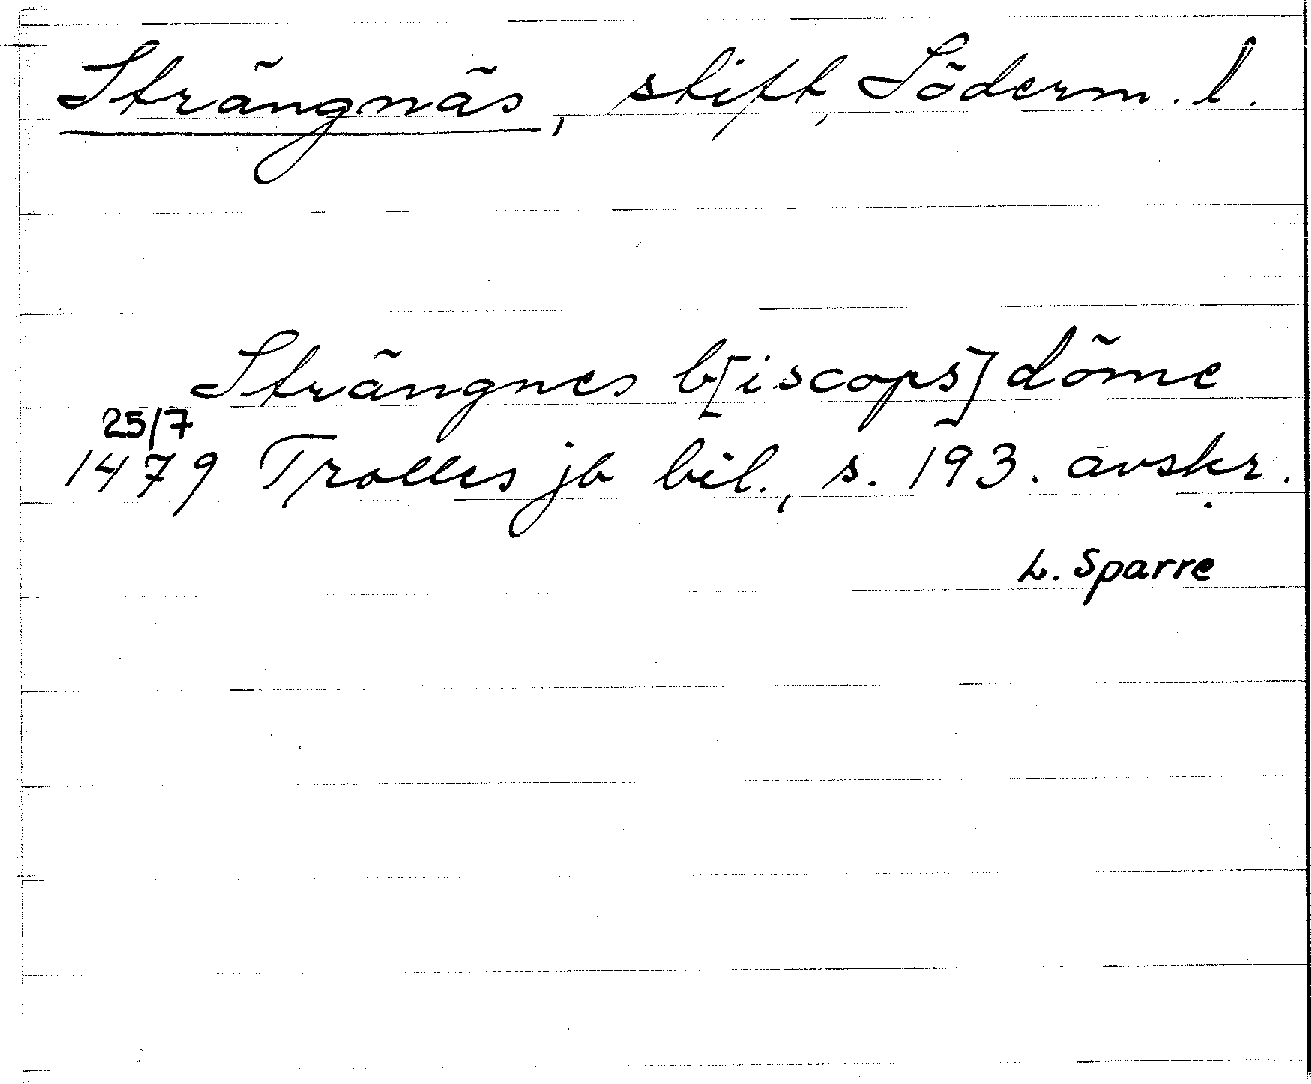 Strängnäs, stift, Söderm. l.
Strängnes b[iscops] döme
25/7
1479 Trolles jb bil., s. 193. avskr.
L. Sparre